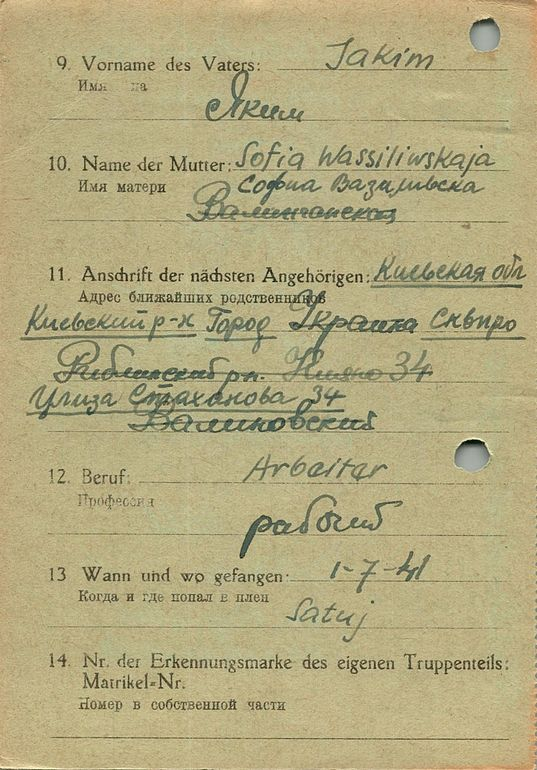 9. Vorname des Vaters: Jakim
Имя на
Яким
10. Name der Mutter: Sofia Wassiliwskaja
Имя матери София Вазиливска
11. Anschrift der nächsten Angehörigen: Киевская обл
Адрес ближайших родственников
Киевский р-н Город Украина Сквиро
34
Улиза Стаханова 34
Валиновский
12. Beruf: Arbeiter
Профессия
рабочий
13 Wann und wo gefangen: 1-7-41
Когда и где попал в плен
Satuj
14. Nr. der Erkennungsmarke des eigenen Truppenteils:
Matrikel-Nr.
Номер в собственной части